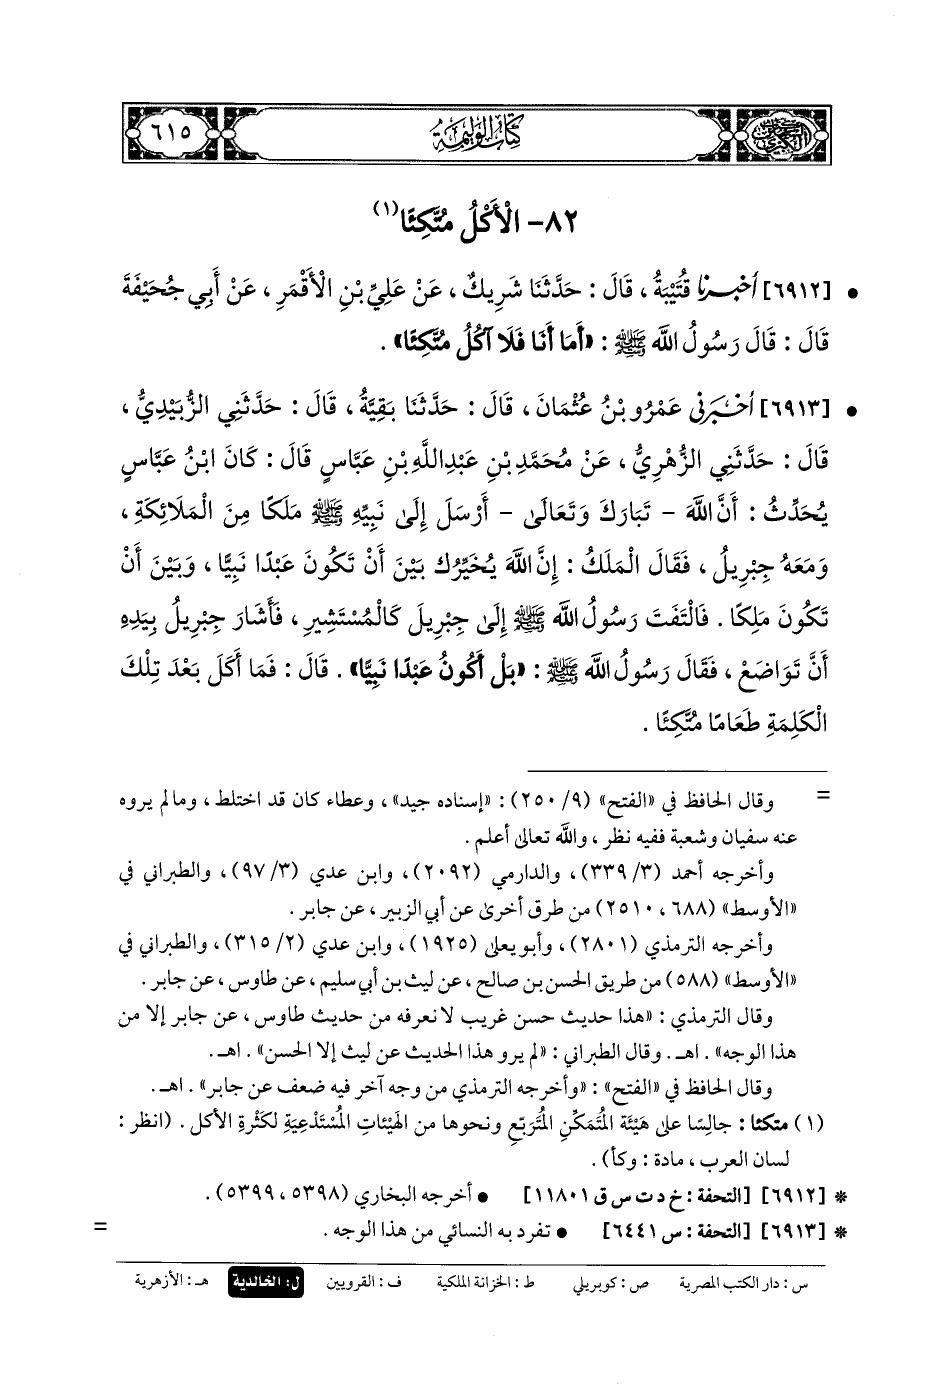 ٦١٥
كتاب الوليمة
السنن الكبرى
٨٢- الْأَكْلُ مُتَّكِئًا(١)
• [٦٩١٢] أخبرنا قُتَيْبَةُ، قَالَ: حَدَّثَنَا شَرِيكٌ، عَنْ عَلِيِّ بْنِ الْأَقْمَرِ، عَنْ أَبِي جُحَيْفَةَ
قَالَ: قَالَ رَسُولُ اللَّهِ ﷺ: «أَمَا أَنَا فَلَا آكُلُ مُتَّكِئًا».
• [٦٩١٣] أخبرني عَمْرُو بْنُ عُثْمَانَ، قَالَ: حَدَّثَنَا بَقِيَّةُ، قَالَ: حَدَّثَنِي الزُّبَيْدِيُّ،
قَالَ: حَدَّثَنِي الزُّهْرِيُّ، عَنْ مُحَمَّدِ بْنِ عَبْدِاللَّهِ بْنِ عَبَّاسٍ قَالَ: كَانَ ابْنُ عَبَّاسٍ
يُحَدِّثُ: أَنَّ اللَّهَ - تَبَارَكَ وَتَعَالَى - أَرْسَلَ إِلَى نَبِيِّهِ ﷺ مَلَكًا مِنَ الْمَلَائِكَةِ،
وَمَعَهُ جِبْرِيلُ، فَقَالَ الْمَلَكُ: إِنَّ اللَّهَ يُخَيِّرُكَ بَيْنَ أَنْ تَكُونَ عَبْدًا نَبِيًّا، وَبَيْنَ أَنْ
تَكُونَ مَلِكًا. فَالْتَفَتَ رَسُولُ اللَّهِ ﷺ إِلَى جِبْرِيلَ كَالْمُسْتَشِيرِ، فَأَشَارَ جِبْرِيلُ بِيَدِهِ
أَنْ تَوَاضَعْ، فَقَالَ رَسُولُ اللَّهِ ﷺ: «بَلْ أَكُونُ عَبْدًا نَبِيًّا». قَالَ: فَمَا أَكَلَ بَعْدَ تِلْكَ
الْكَلِمَةِ طَعَامًا مُتَّكِئًا.
= وقال الحافظ في «الفتح» (٩/ ٢٥٠): «إسناده جيد»، وعطاء كان قد اختلط، وما لم يروه
عنه سفيان وشعبة ففيه نظر، والله تعالى أعلم.
وأخرجه أحمد (٣/ ٣٣٩)، والدارمي (٢٠٩٢)، وابن عدي (٣/ ٩٧)، والطبراني في
«الأوسط» (٦٨٨، ٢٥١٠) من طرق أخرى عن أبي الزبير، عن جابر.
وأخرجه الترمذي (٢٨٠١)، وأبو يعلى (١٩٢٥)، وابن عدي (٢/ ٣١٥)، والطبراني في
«الأوسط» (٥٨٨) من طريق الحسن بن صالح، عن ليث بن أبي سليم، عن طاوس، عن جابر.
وقال الترمذي: «هذا حديث حسن غريب لا نعرفه من حديث طاوس، عن جابر إلا من
هذا الوجه». اهـ. وقال الطبراني: «لم يرو هذا الحديث عن ليث إلا الحسن». اهـ.
وقال الحافظ في «الفتح»: «وأخرجه الترمذي من وجه آخر فيه ضعف عن جابر». اهـ.
(١) متكئا: جالِسًا على هَيْئَة المُتَمَكِّنِ المُتَرَبِّعِ ونحوها من الهَيْئاتِ المُسْتَدْعِيَةِ لكَثْرةِ الأكل. (انظر:
لسان العرب، مادة: وكأ).
* [٦٩١٢] [التحفة: خ د ت س ق ١١٨٠١] • أخرجه البخاري (٥٣٩٨، ٥٣٩٩).
* [٦٩١٣] [التحفة: س ٦٤٤١] • تفرد به النسائي من هذا الوجه. =
س: دار الكتب المصرية ص: كوبريلي ط: الخزانة الملكية ف: القرويين ل: الخالدية هـ: الأزهرية